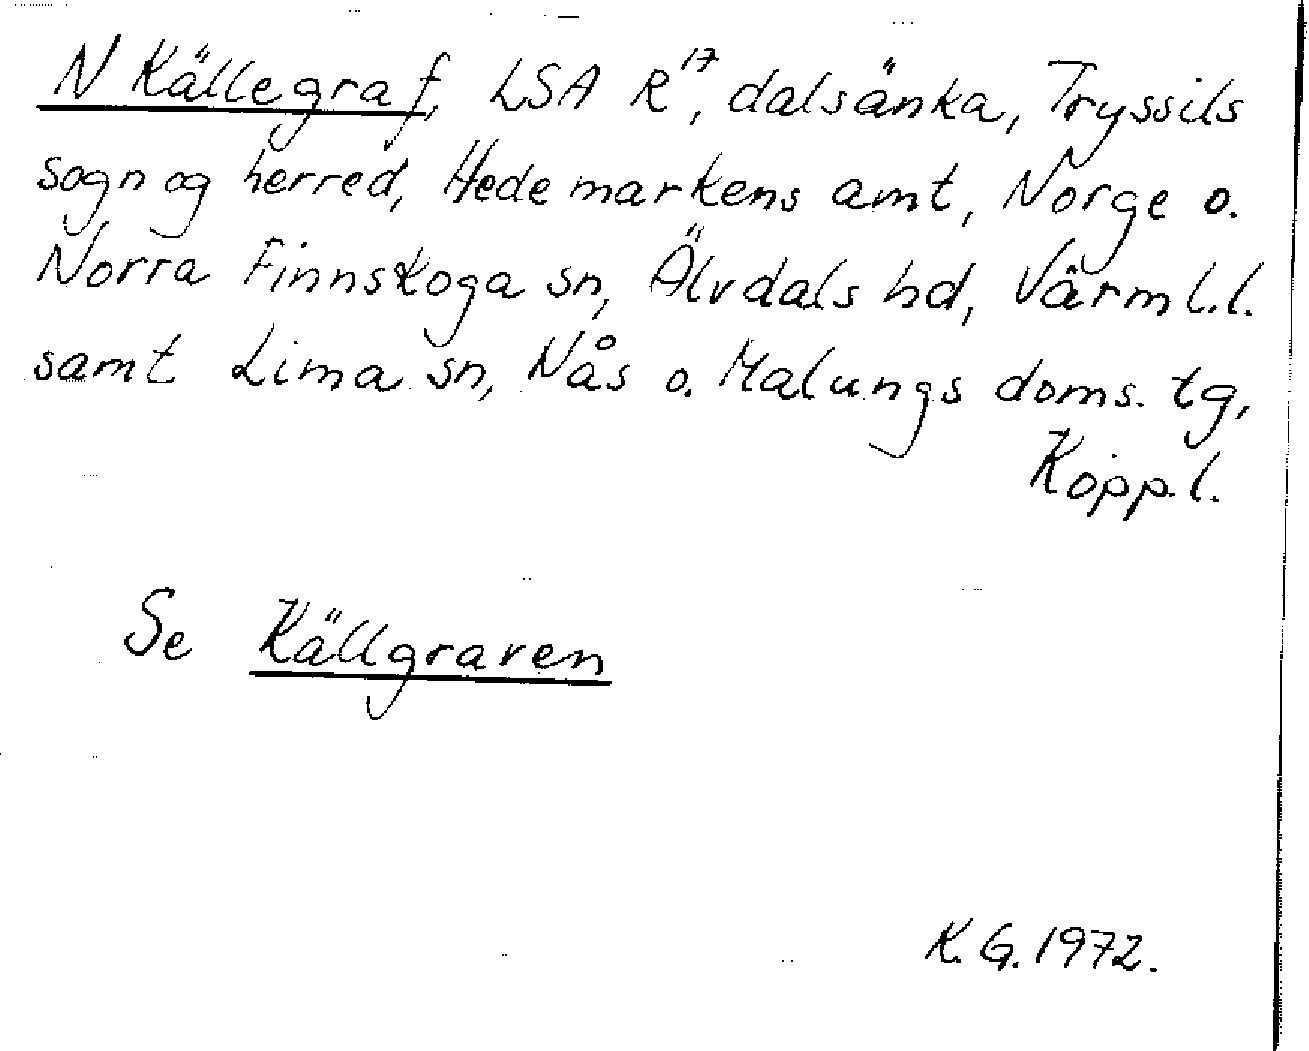 N Källegraf, LSA R¹⁷, dalsänka, Tryssils
sogn og herred, Hedemarkens amt, Norge o.
Norra Finnskoga sn, Älvdals hd, Värml.l.
samt Lima sn, Nås o. Malungs doms. tg,
Kopp.l.
Se Källgraven
K.G.1972.